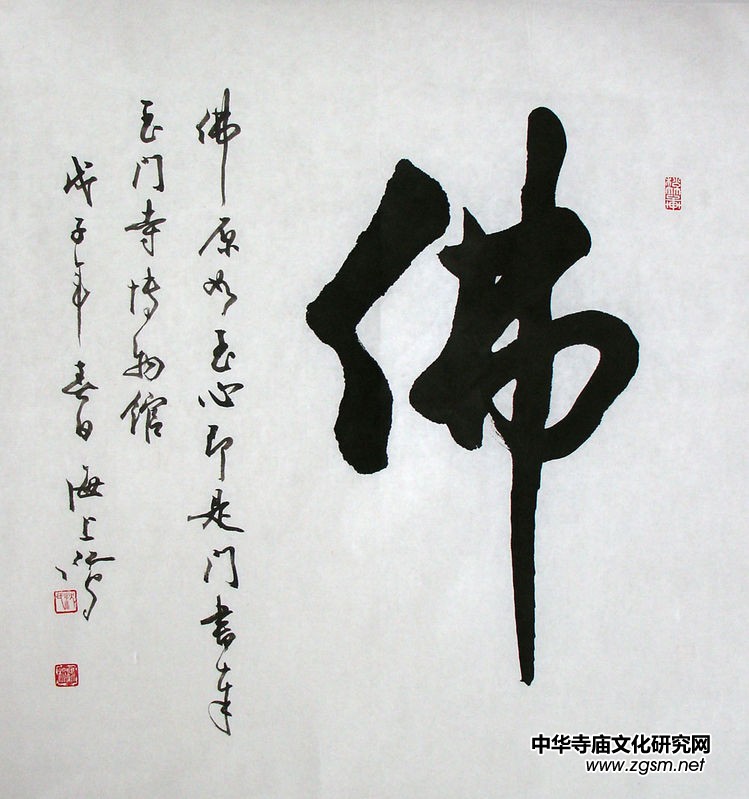 佛
佛原如玉心即是门书奉
玉门寺博物馆
戊子年春日海上
中华寺庙文化研究网
www.zgsm.net